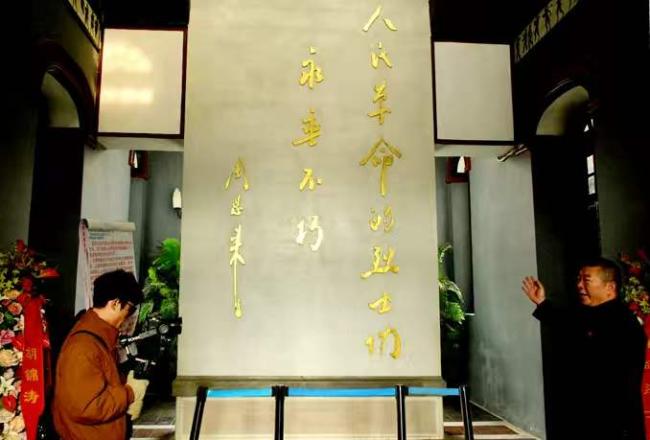 人民革命的烈士们
永垂不朽
周恩来
胡锦涛